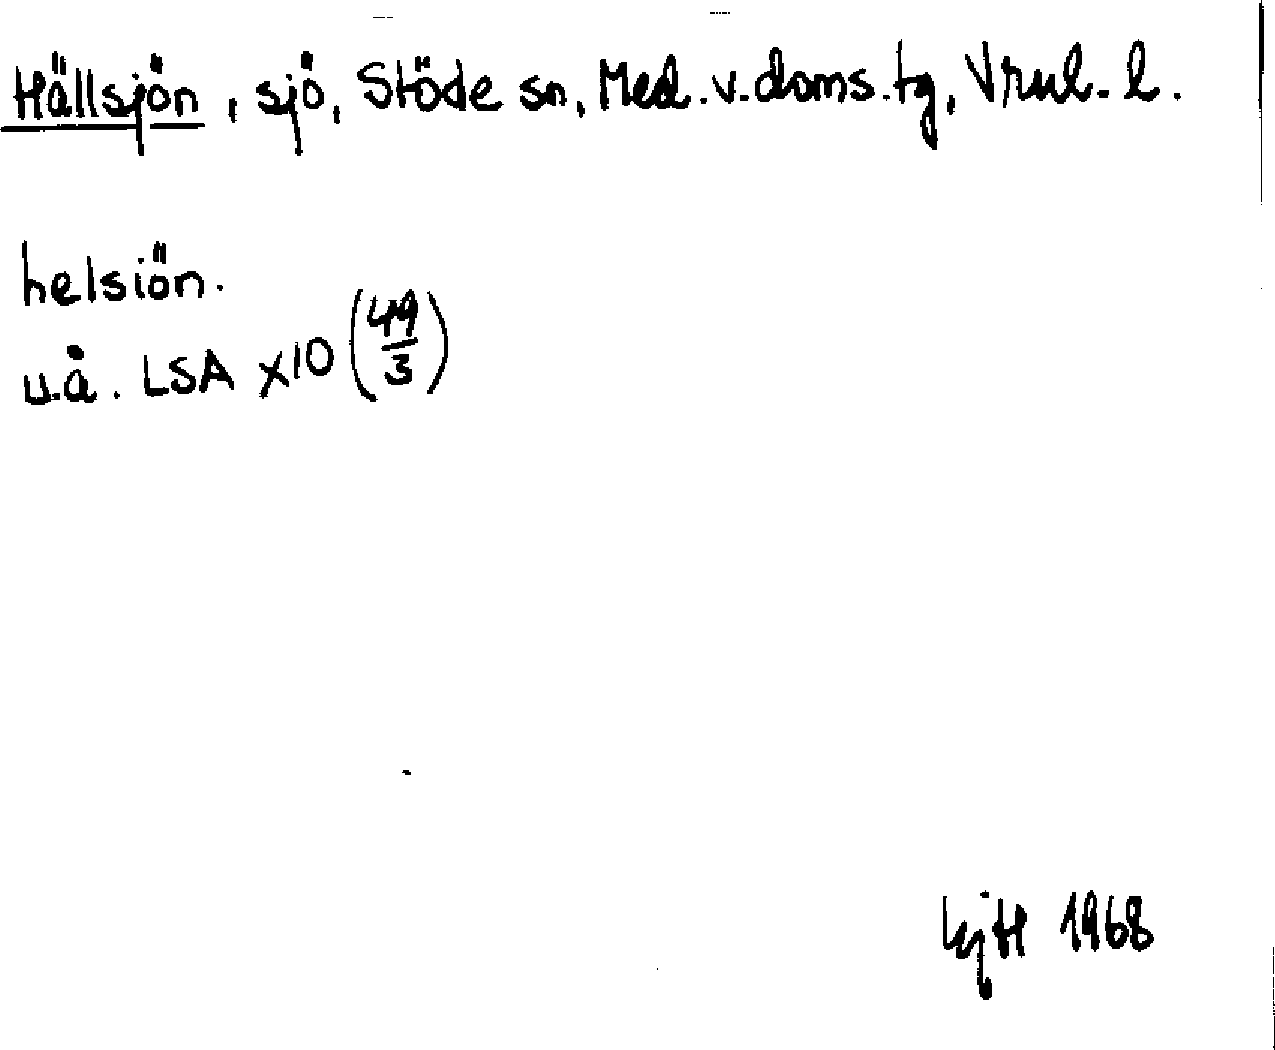 Hällsjön, sjö, Stöde sn, Med. v. doms. tg, Vrnl. l.
helsiön.
u.å. LSA X10 (49/3)
1968